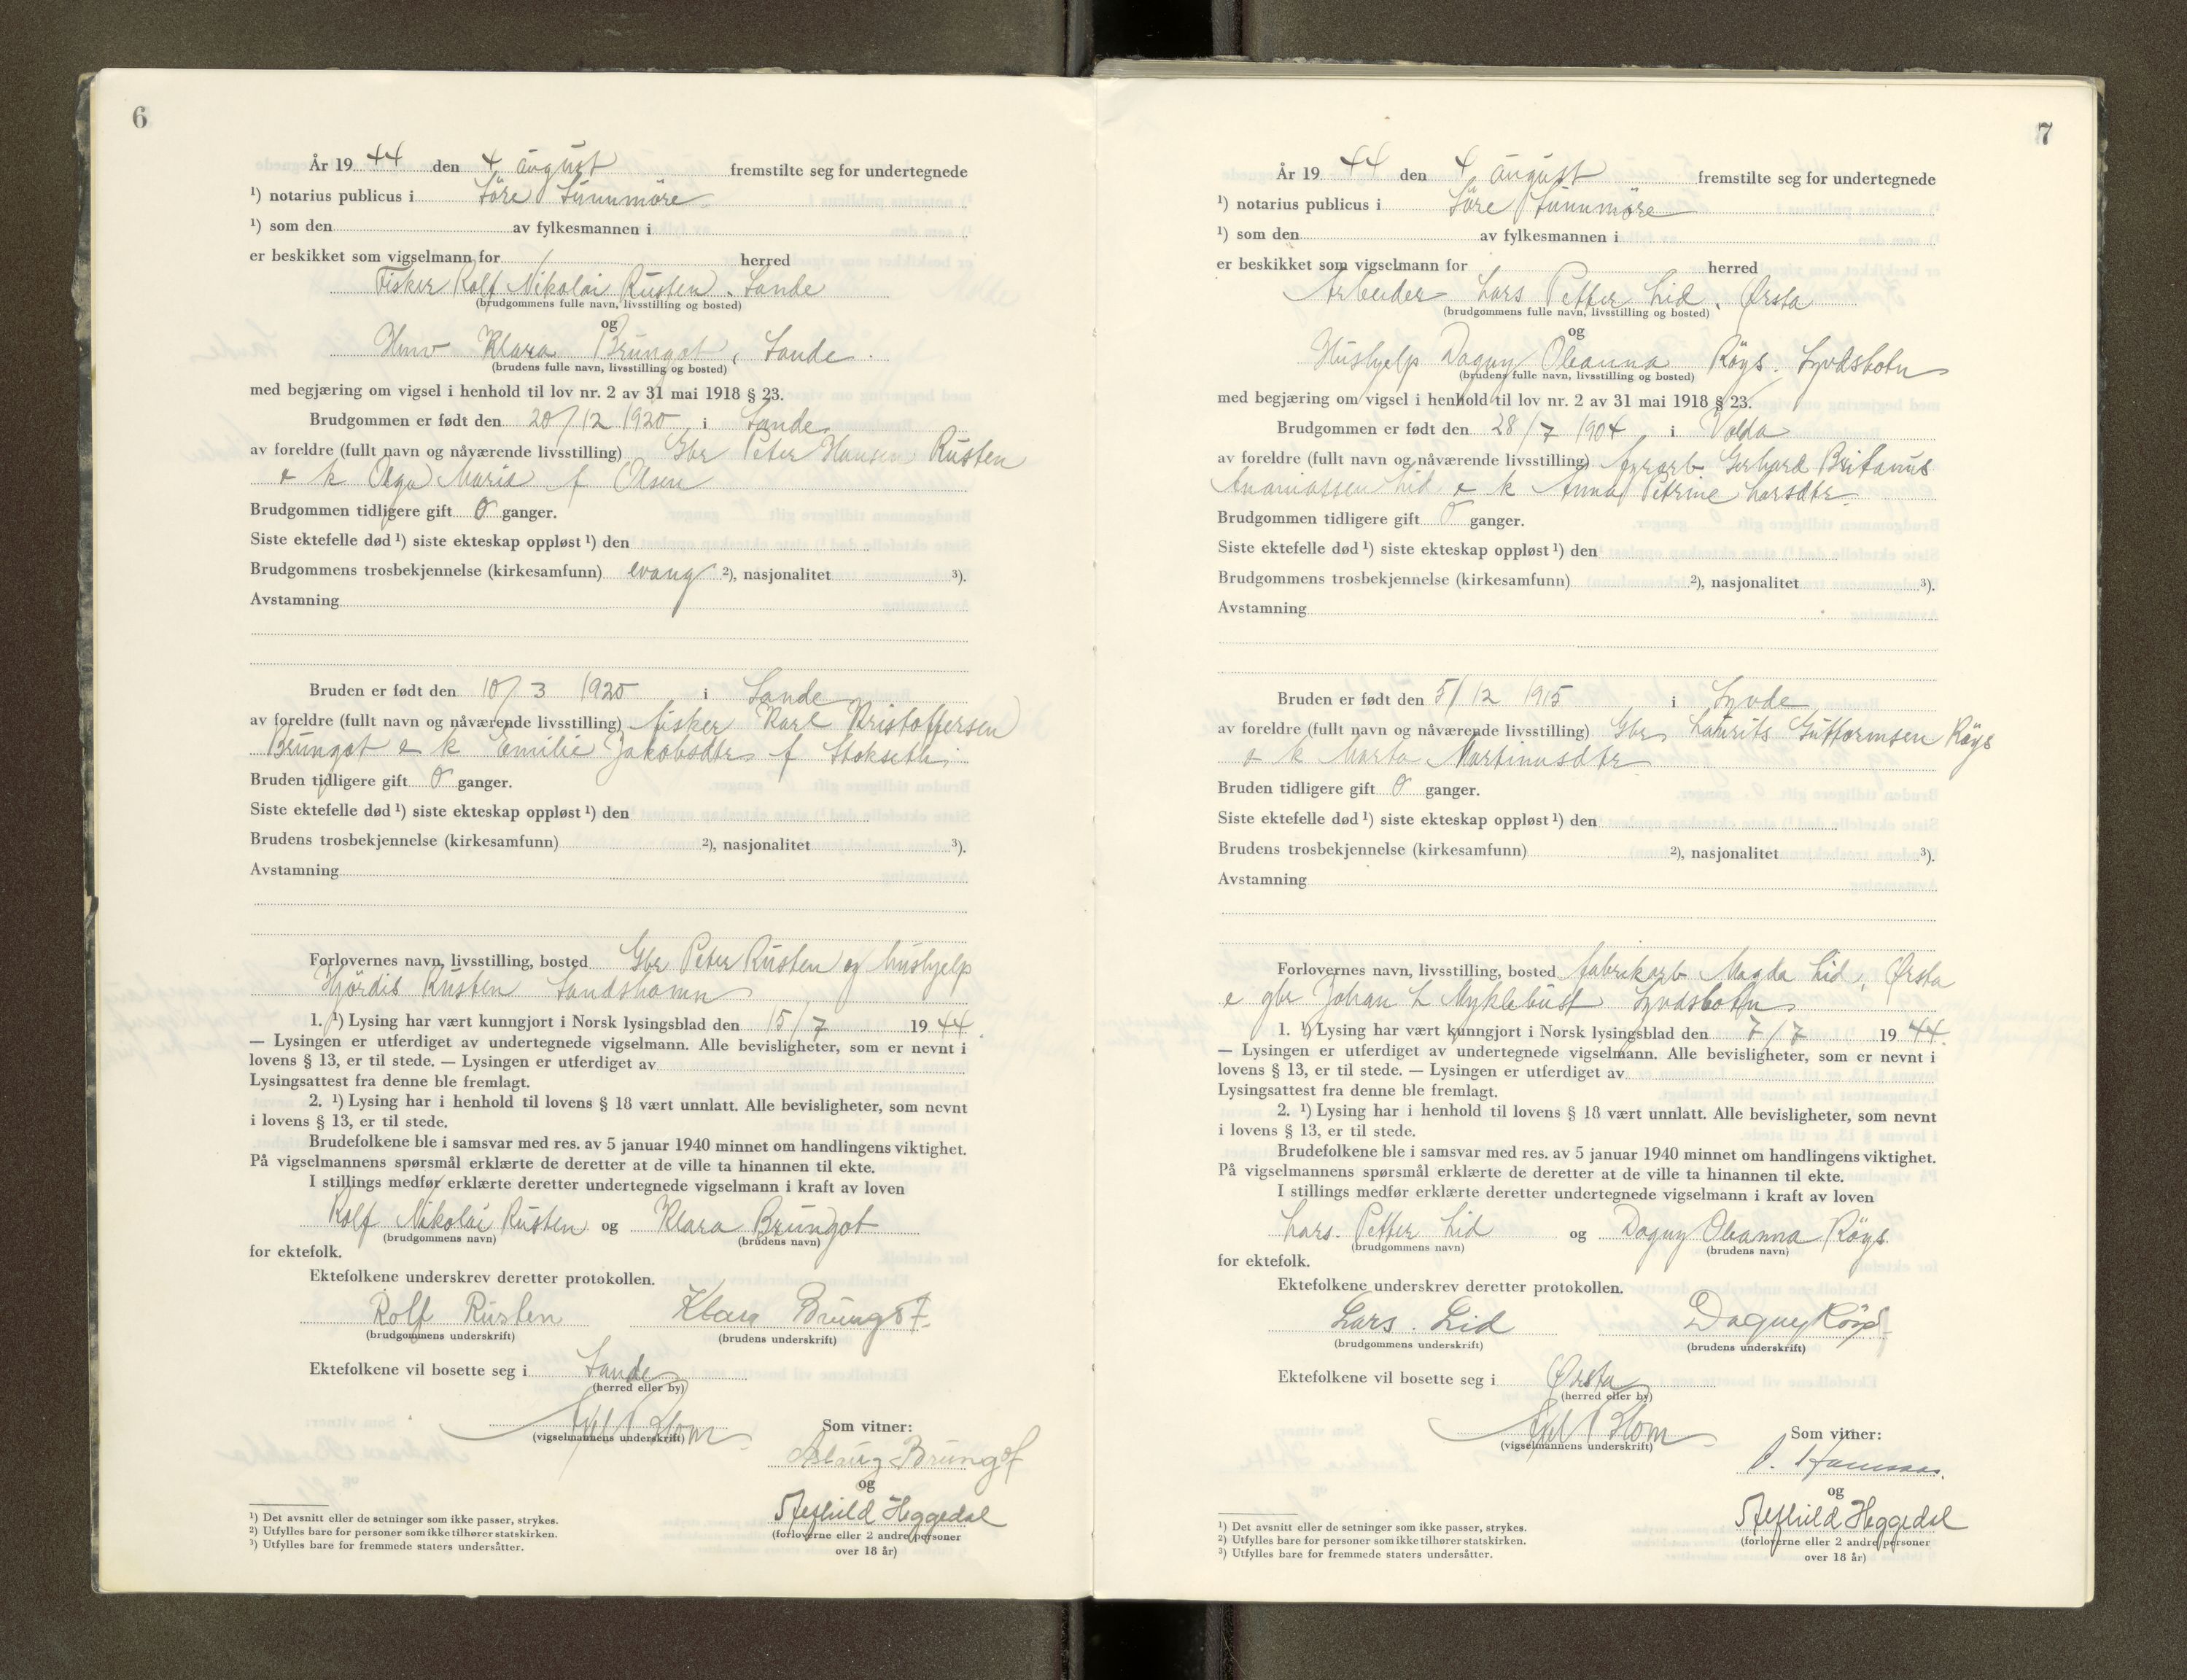 6
År 19 44 den 4 august fremstilte seg for undertegnede
¹) notarius publicus i Söre Sunnmöre
¹) som den av fylkesmannen i
er beskikket som vigselmann for herred
Fisker Rolf Nikolai Rusten, Sande
(brudgommens fulle navn, livsstilling og bosted)
og
Klara Brungot, Sande.
(brudens fulle navn, livsstilling og bosted)
med begjæring om vigsel i henhold til lov nr. 2 av 31 mai 1918 § 23.
Brudgommen er født den 20/12 1920 i Sande
av foreldre (fullt navn og nåværende livsstilling) Gbr Peter Hansen Rusten
e k Olga Marie f Olsen
Brudgommen tidligere gift 0 ganger.
Siste ektefelle død ¹) siste ekteskap oppløst ¹) den
Brudgommens trosbekjennelse (kirkesamfunn) evang ²), nasjonalitet ³).
Avstamning
Bruden er født den 10/3 1920 i Sande
av foreldre (fullt navn og nåværende livsstilling) fisker Karl Kristoffersen
Brungot e k Emilie Jakobsdtr f Stokseth
Bruden tidligere gift 0 ganger.
Siste ektefelle død ¹) siste ekteskap oppløst ¹) den
Brudens trosbekjennelse (kirkesamfunn) ²), nasjonalitet ³).
Avstamning
Forlovernes navn, livsstilling, bosted Gbr Peter Rusten og hushjelp
Hjördis Rusten Sandshamn
1. ¹) Lysing har vært kunngjort i Norsk lysingsblad den 15/7 19 44.
— Lysingen er utferdiget av undertegnede vigselmann. Alle bevisligheter, som er nevnt i
lovens § 13, er til stede. — Lysingen er utferdiget av
Lysingsattest fra denne ble fremlagt.
2. ¹) Lysing har i henhold til lovens § 18 vært unnlatt. Alle bevisligheter, som nevnt
i lovens § 13, er til stede.
Brudefolkene ble i samsvar med res. av 5 januar 1940 minnet om handlingens viktighet.
På vigselmannens spørsmål erklærte de deretter at de ville ta hinannen til ekte.
I stillings medfør erklærte deretter undertegnede vigselmann i kraft av loven
Rolf Nikolai Rusten og Klara Brungot
(brudgommens navn) (brudens navn)
for ektefolk.
Ektefolkene underskrev deretter protokollen.
Rolf Rusten Klara Brungot
(brudgommens underskrift) (brudens underskrift)
Ektefolkene vil bosette seg i Sande
(herred eller by)
(vigselmannens underskrift)
Som vitner:
Åslaug Brungot
og
Steffhild Heggedal
(forloverne eller 2 andre personer
over 18 år)
¹) Det avsnitt eller de setninger som ikke passer, strykes.
²) Utfylles bare for personer som ikke tilhører statskirken.
³) Utfylles bare for fremmede staters undersåtter.
7
År 19 44 den 4 august fremstilte seg for undertegnede
¹) notarius publicus i Söre Sunnmöre
¹) som den av fylkesmannen i
er beskikket som vigselmann for herred
Arbeider Lars Petter Lid, Ørsta
(brudgommens fulle navn, livsstilling og bosted)
og
Hushjelp Dagny Oleanna Röys. Syvdsbotn
(brudens fulle navn, livsstilling og bosted)
med begjæring om vigsel i henhold til lov nr. 2 av 31 mai 1918 § 23.
Brudgommen er født den 28/7 1904 i Volda
av foreldre (fullt navn og nåværende livsstilling) Gerhard Britanus
Ananiassen Lid e k Anna Petrine Larsdtr
Brudgommen tidligere gift 0 ganger.
Siste ektefelle død ¹) siste ekteskap oppløst ¹) den
Brudgommens trosbekjennelse (kirkesamfunn) ²), nasjonalitet ³).
Avstamning
Bruden er født den 5/12 1915 i Syvde
av foreldre (fullt navn og nåværende livsstilling) Gbr Laurits Guttormsen Röys
e k Marta Martinusdtr
Bruden tidligere gift 0 ganger.
Siste ektefelle død ¹) siste ekteskap oppløst ¹) den
Brudens trosbekjennelse (kirkesamfunn) ²), nasjonalitet ³).
Avstamning
Forlovernes navn, livsstilling, bosted fabrikarb Magda Lid, Ørsta
e gbr Johan L Myklebust Syvdsbotn
1. ¹) Lysing har vært kunngjort i Norsk lysingsblad den 7/7 19 44.
— Lysingen er utferdiget av undertegnede vigselmann. Alle bevisligheter, som er nevnt i
lovens § 13, er til stede. — Lysingen er utferdiget av
Lysingsattest fra denne ble fremlagt.
2. ¹) Lysing har i henhold til lovens § 18 vært unnlatt. Alle bevisligheter, som nevnt
i lovens § 13, er til stede.
Brudefolkene ble i samsvar med res. av 5 januar 1940 minnet om handlingens viktighet.
På vigselmannens spørsmål erklærte de deretter at de ville ta hinannen til ekte.
I stillings medfør erklærte deretter undertegnede vigselmann i kraft av loven
Lars. Petter Lid og Dagny Oleanna Röys.
(brudgommens navn) (brudens navn)
for ektefolk.
Ektefolkene underskrev deretter protokollen.
Lars. Lid Dagny Röys
(brudgommens underskrift) (brudens underskrift)
Ektefolkene vil bosette seg i Ørsta
(herred eller by)
(vigselmannens underskrift)
Som vitner:
og
Steffhild Heggedal
(forloverne eller 2 andre personer
over 18 år)
¹) Det avsnitt eller de setninger som ikke passer, strykes.
²) Utfylles bare for personer som ikke tilhører statskirken.
³) Utfylles bare for fremmede staters undersåtter.